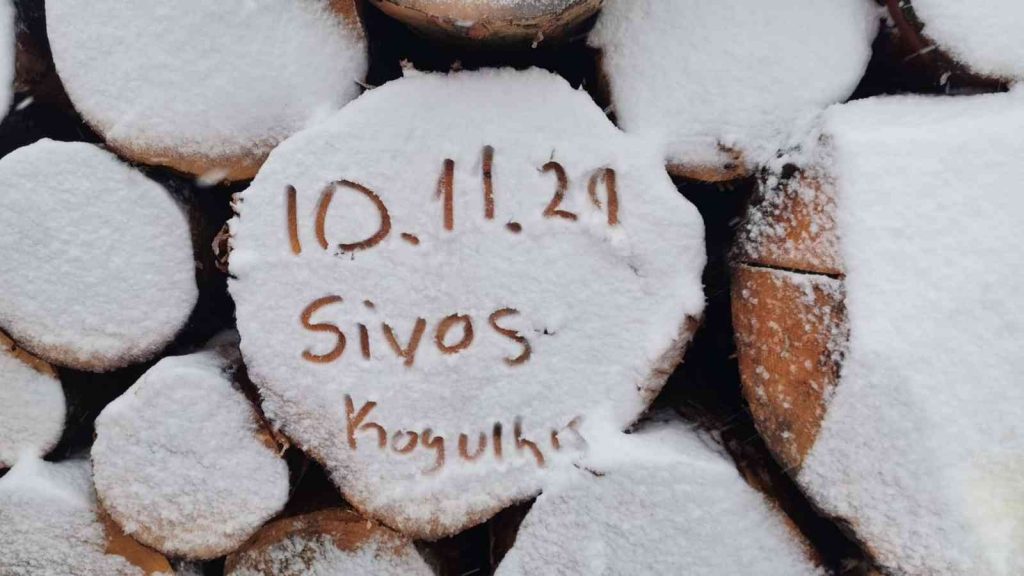 10.11.21
Sivos